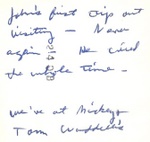 John's first trip out
visiting — Never
again. He cried
the whole time —
we're at Mickey &
Tom Waddell's